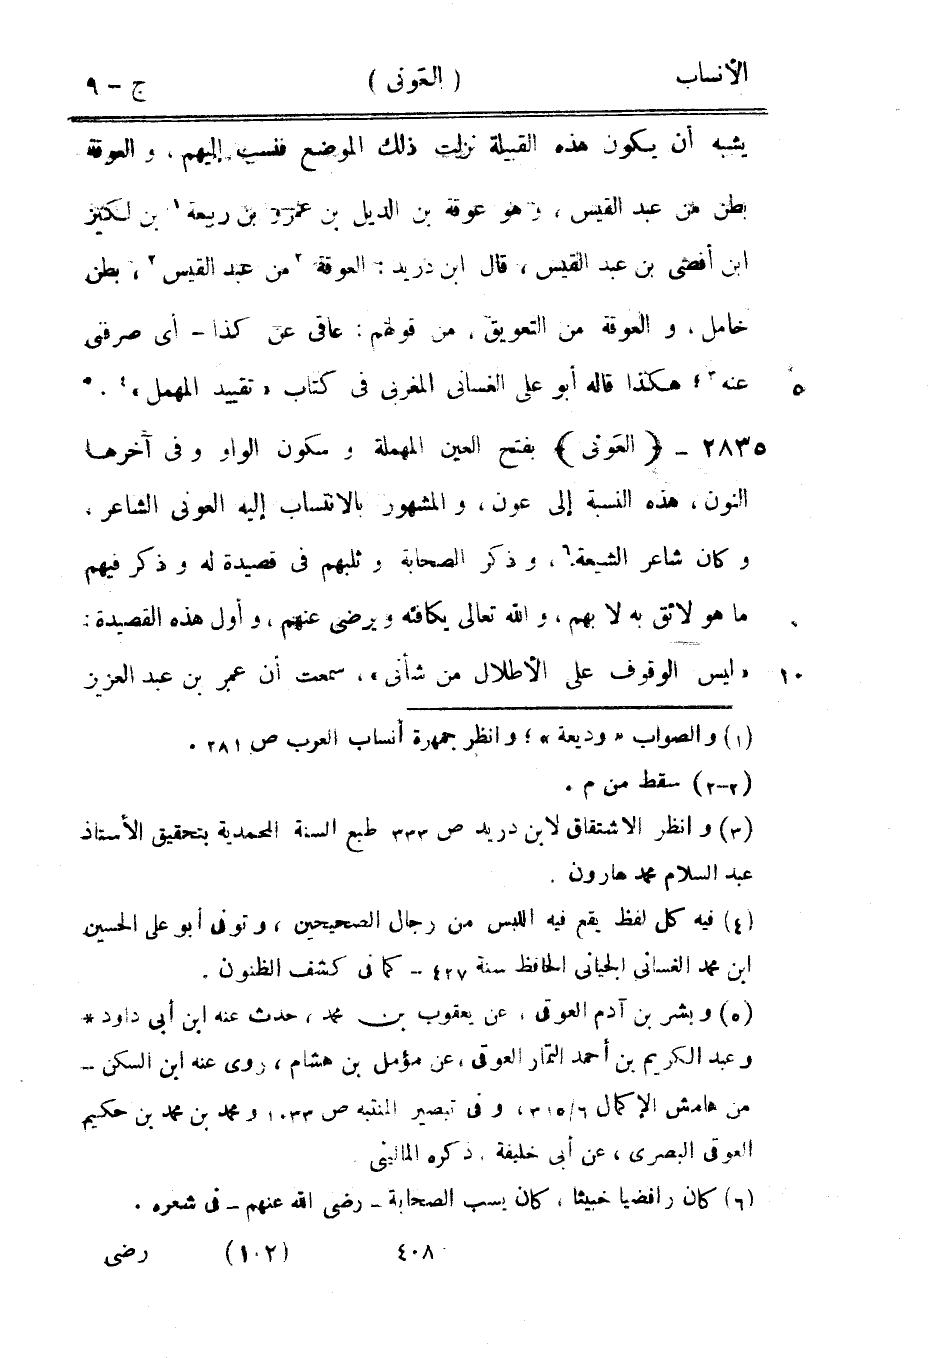 الأنساب ( العونى ) ج - ٩
يشبه أن يكون هذه القبيلة نزلت ذلك الموضع فنسب إليهم ، و العوقة
بطن من عبد القيس ، و هو عوقة بن الديل بن عمرو بن ربيعة ١ بن لكيز
ابن أفصى بن عبد القيس ، قال ابن دريد : العوقة ٢ من عبد القيس ٢ ، بطن
خامل ، و العوقة من التعويق ، من قولهم : عاقى عن كذا - أى صرفنى
عنه ٣ ؛ هكذا قاله أبو على الغسانى المغربى فى كتاب « تقييد المهمل » ٤ . ٥
٢٨٣٥ - ﴿ العَونى ﴾ بفتح العين المهملة و سكون الواو و فى آخرها
النون ، هذه النسبة إلى عون ، و المشهور بالانتساب إليه العونى الشاعر ،
و كان شاعر الشيعة ٦ ، و ذكر الصحابة و ثلبهم فى قصيدة له و ذكر فيهم
ما هو لائق به لا بهم ، و الله تعالى يكافئه و يرضى عنهم ، و أول هذه القصيدة :
١٠ « ليس الوقوف على الأطلال من شأنى » ، سمعت أن عمر بن عبد العزيز
(١) و الصواب « وديعة » ؛ و انظر جمهرة أنساب العرب ص ٢٨١ .
(٢-٢) سقط من م .
(٣) و انظر الاشتقاق لابن دريد ص ٣٣٣ طبع السنة المحمدية بتحقيق الأستاذ
عبد السلام محمد هارون .
(٤) فيه كل لفظ يقع فيه اللبس من رجال الصحيحين ، و توفى أبو على الحسين
ابن محمد الغسانى الجيانى الحافظ سنة ٤٢٧ - كما فى كشف الظنون .
(٥) و بشر بن آدم العوقى ، عن يعقوب بن محمد ، حدث عنه ابن أبى داود *
و عبد الكريم بن أحمد التمار العوقى ، عن مؤمل بن هشام ، روى عنه ابن السكن -
من هامش الإكمال ٣١٥/٦ ، و فى تبصير المنتبه ص ١٠٣٣ و محمد بن محمد بن حكيم
العوقى البصرى ، عن أبى خليفة . ذكره المالينى
(٦) كان رافضيا خبيثا ، كان يسب الصحابة - رضى الله عنهم - فى شعره .
٤٠٨ (١٠٢) رضى